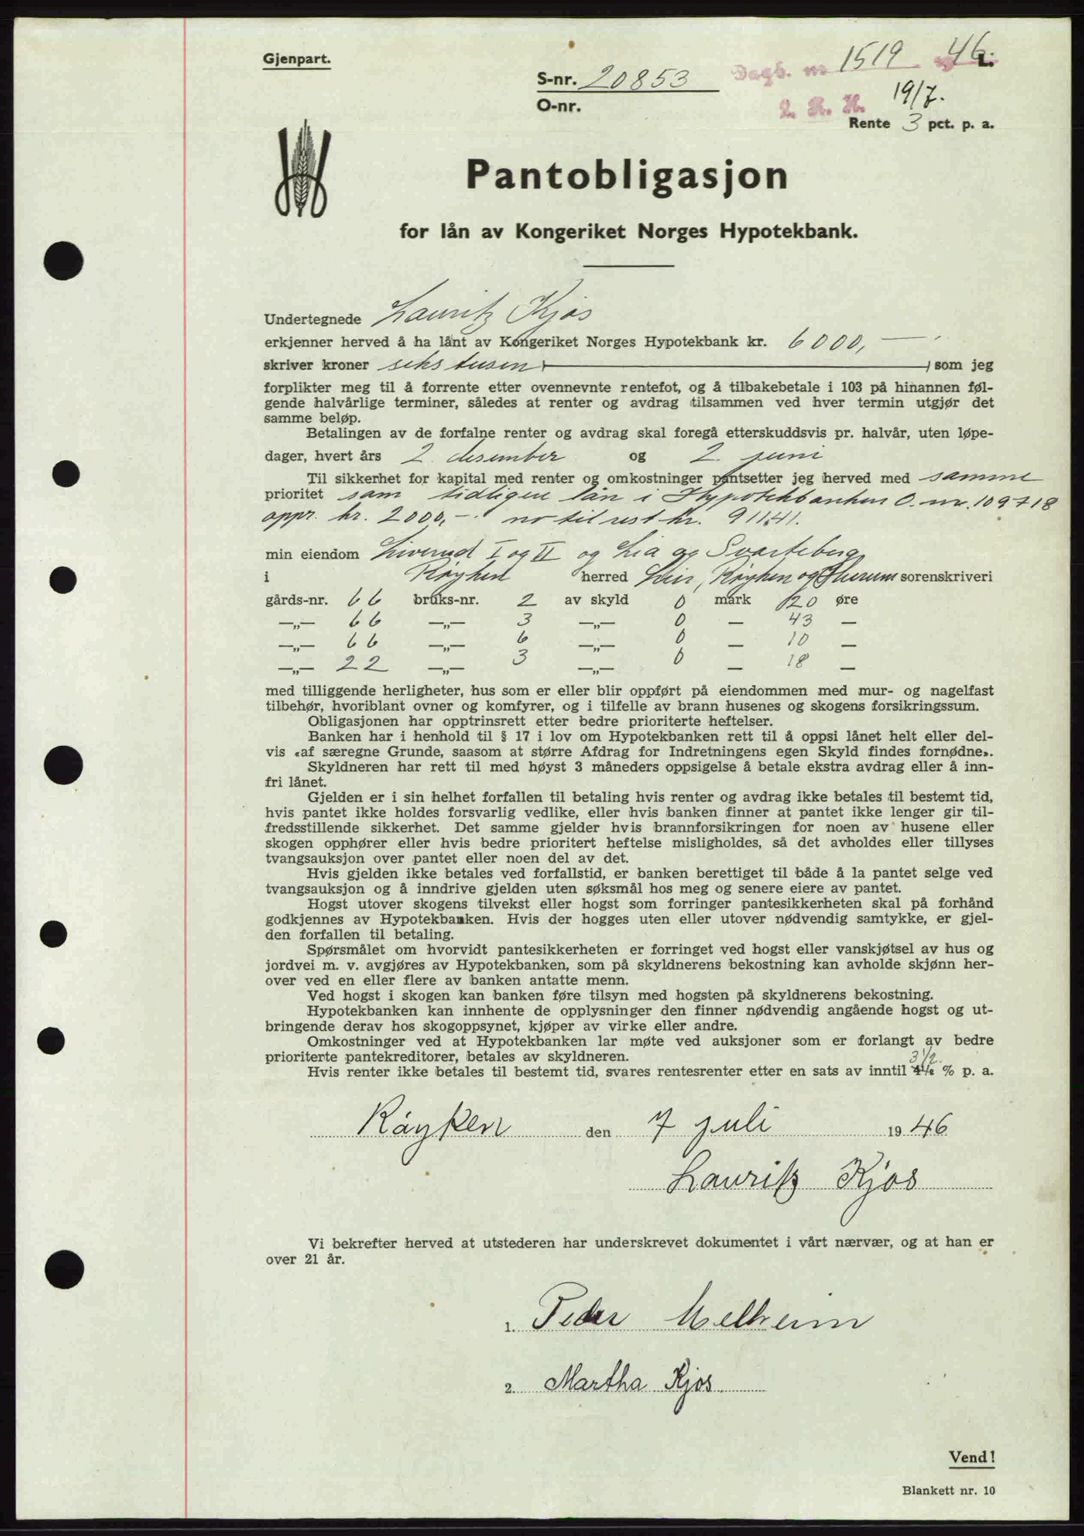 Gjenpart.
S-nr. 20853
Dagb. nr 1519 46 L.
O-nr.
L. R. H. 19/7.
Rente 3 pct. p. a.
Pantobligasjon
for lån av Kongeriket Norges Hypotekbank.
Undertegnede Lauritz Kjos
erkjenner herved å ha lånt av Kongeriket Norges Hypotekbank kr. 6000,—
skriver kroner seks tusen som jeg
forplikter meg til å forrente etter ovennevnte rentefot, og å tilbakebetale i 103 på hinannen føl-
gende halvårlige terminer, således at renter og avdrag tilsammen ved hver termin utgjør det
samme beløp.
Betalingen av de forfalne renter og avdrag skal foregå etterskuddsvis pr. halvår, uten løpe-
dager, hvert års 2. desember og 2. juni
Til sikkerhet for kapital med renter og omkostninger pantsetter jeg herved med samme
prioritet som tidligere lån i Hypotekbanken O. nr. 109718
oppr. kr. 2000,-. no til rest kr. 911.41.
min eiendom Liverud I og II og Lia og Svarteberg
i Røyken herred Lier, Røyken og Hurum sorenskriveri
gårds-nr. 66 bruks-nr. 2 av skyld 0 mark 20 øre
—„— 66 —„— 3 —„— 0 — 43 —
—„— 66 —„— 6 —„— 0 — 10 —
—„— 22 —„— 3 —„— 0 — 18 —
med tilliggende herligheter, hus som er eller blir oppført på eiendommen med mur- og nagelfast
tilbehør, hvoriblant ovner og komfyrer, og i tilfelle av brann husenes og skogens forsikringssum.
Obligasjonen har opptrinsrett etter bedre prioriterte heftelser.
Banken har i henhold til § 17 i lov om Hypotekbanken rett til å oppsi lånet helt eller del-
vis «af særegne Grunde, saasom at større Afdrag for Indretningens egen Skyld findes fornødne».
Skyldneren har rett til med høyst 3 måneders oppsigelse å betale ekstra avdrag eller å inn-
fri lånet.
Gjelden er i sin helhet forfallen til betaling hvis renter og avdrag ikke betales til bestemt tid,
hvis pantet ikke holdes forsvarlig vedlike, eller hvis banken finner at pantet ikke lenger gir til-
fredsstillende sikkerhet. Det samme gjelder hvis brannforsikringen for noen av husene eller
skogen opphører eller hvis bedre prioritert heftelse misligholdes, så det avholdes eller tillyses
tvangsauksjon over pantet eller noen del av det.
Hvis gjelden ikke betales ved forfallstid, er banken berettiget til både å la pantet selge ved
tvangsauksjon og å inndrive gjelden uten søksmål hos meg og senere eiere av pantet.
Hogst utover skogens tilvekst eller hogst som forringer pantesikkerheten skal på forhånd
godkjennes av Hypotekbanken. Hvis der hogges uten eller utover nødvendig samtykke, er gjel-
den forfallen til betaling.
Spørsmålet om hvorvidt pantesikkerheten er forringet ved hogst eller vanskjøtsel av hus og
jordvei m. v. avgjøres av Hypotekbanken, som på skyldnerens bekostning kan avholde skjønn her-
over ved en eller flere av banken antatte menn.
Ved hogst i skogen kan banken føre tilsyn med hogsten på skyldnerens bekostning.
Hypotekbanken kan innhente de opplysninger den finner nødvendig angående hogst og ut-
bringende derav hos skogoppsynet, kjøper av virke eller andre.
Omkostninger ved at Hypotekbanken lar møte ved auksjoner som er forlangt av bedre
prioriterte pantekreditorer, betales av skyldneren.
Hvis renter ikke betales til bestemt tid, svares rentesrenter etter en sats av inntil 3 1/2 % p. a.
Røyken den 7 juli 1946
Lauritz Kjos
Vi bekrefter herved at utstederen har underskrevet dokumentet i vårt nærvær, og at han er
over 21 år.
1. Peder Melheim
2. Martha Kjos
Vend!
Blankett nr. 10